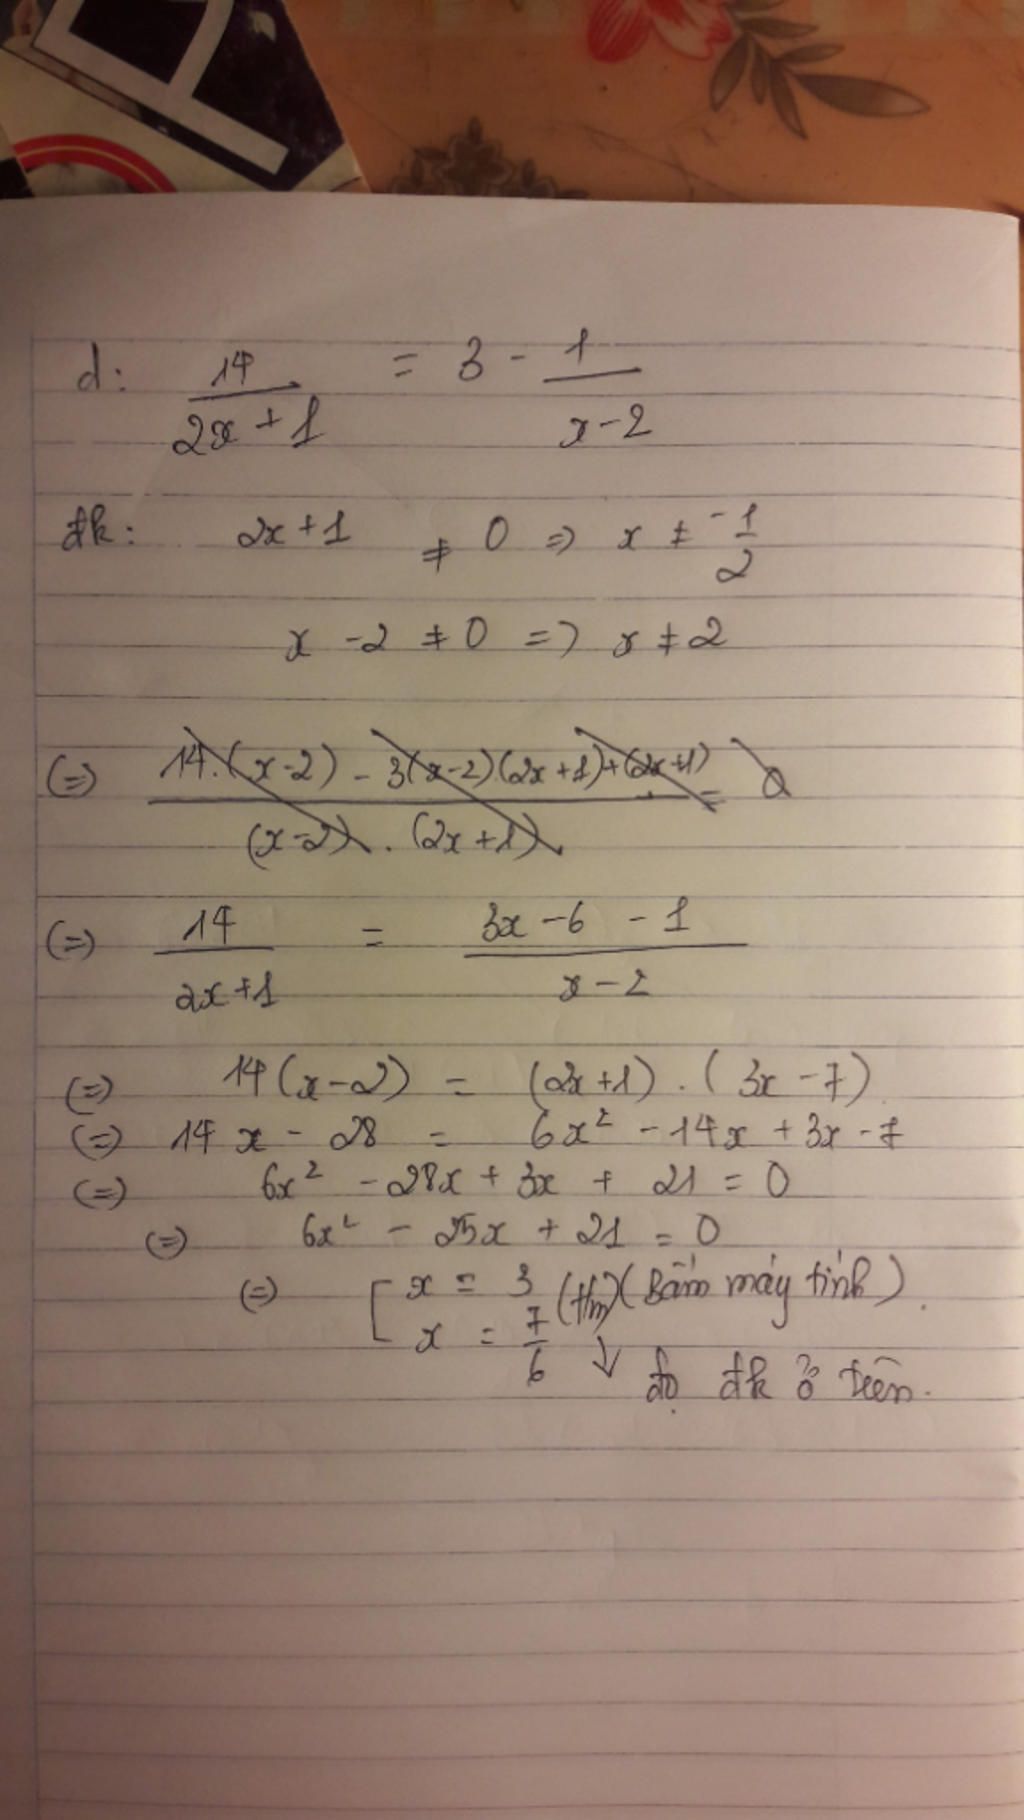 d: 14/(2x+1) = 3 - 1/(x-2)
đk: 2x+1 ≠ 0 => x ≠ -1/2
x - 2 ≠ 0 => x ≠ 2
(=) (14.(x-2) - 3(x-2)(2x+1)+(2x+1))/((x-2).(2x+1)) = 0
(=) 14/(2x+1) = (3x-6-1)/(x-2)
(=) 14(x-2) = (2x+1).(3x-7)
(=) 14x - 28 = 6x² - 14x + 3x - 7
(=) 6x² - 28x + 3x + 21 = 0
(=) 6x² - 25x + 21 = 0
(=) [ x = 3
x = 7/6 (tm) (Bấm máy tính).
↓ đk ở trên.